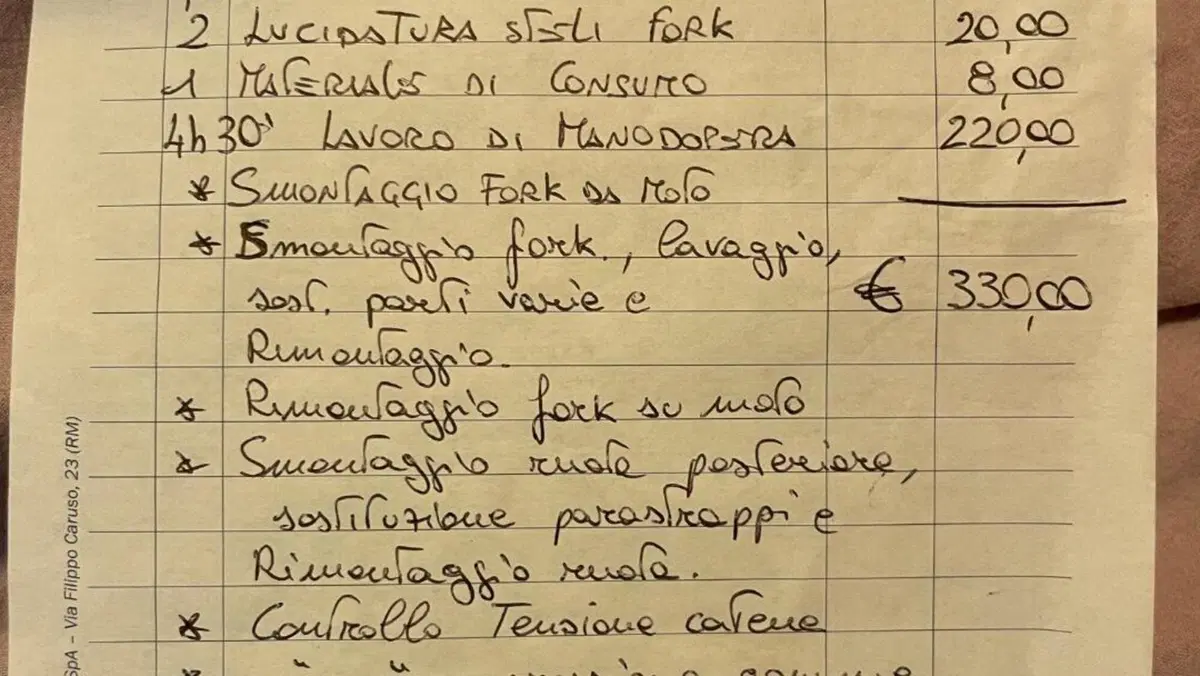 2 LUCIDATURA STELI FORK 20,00
1 MATERIALE DI CONSUMO 8,00
4h 30' LAVORO DI MANODOPERA 220,00
* SMONTAGGIO FORK DA MOTO
* Smontaggio fork., lavaggio,
sost. parti varie e € 330,00
Rimontaggio.
* Rimontaggio fork su moto
* Smontaggio ruota posteriore,
sostituzione parastrappi e
Rimontaggio ruota.
* Controllo Tensione catena
* " "
SpA – Via Filippo Caruso, 23 (RM)